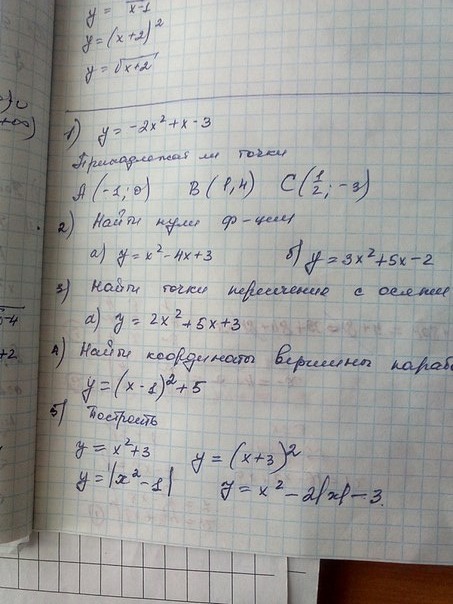 y = x-1
y = (x+2)²
y = √x+2
1) y = -2x² + x - 3
Принадлежат ли точки
A (-1; 0) B (1, 4) C (1/2; -3)
2) Найти нули ф-ции
а) y = x² - 4x + 3 б) y = 3x² + 5x - 2
3) Найти точки пересечение с осями
а) y = 2x² + 5x + 3
4) Найти координаты вершины параб
y = (x - 1)² + 5
5) Построить
y = x² + 3 y = (x+3)²
y = |x² - 1| y = x² - 2|x| - 3.